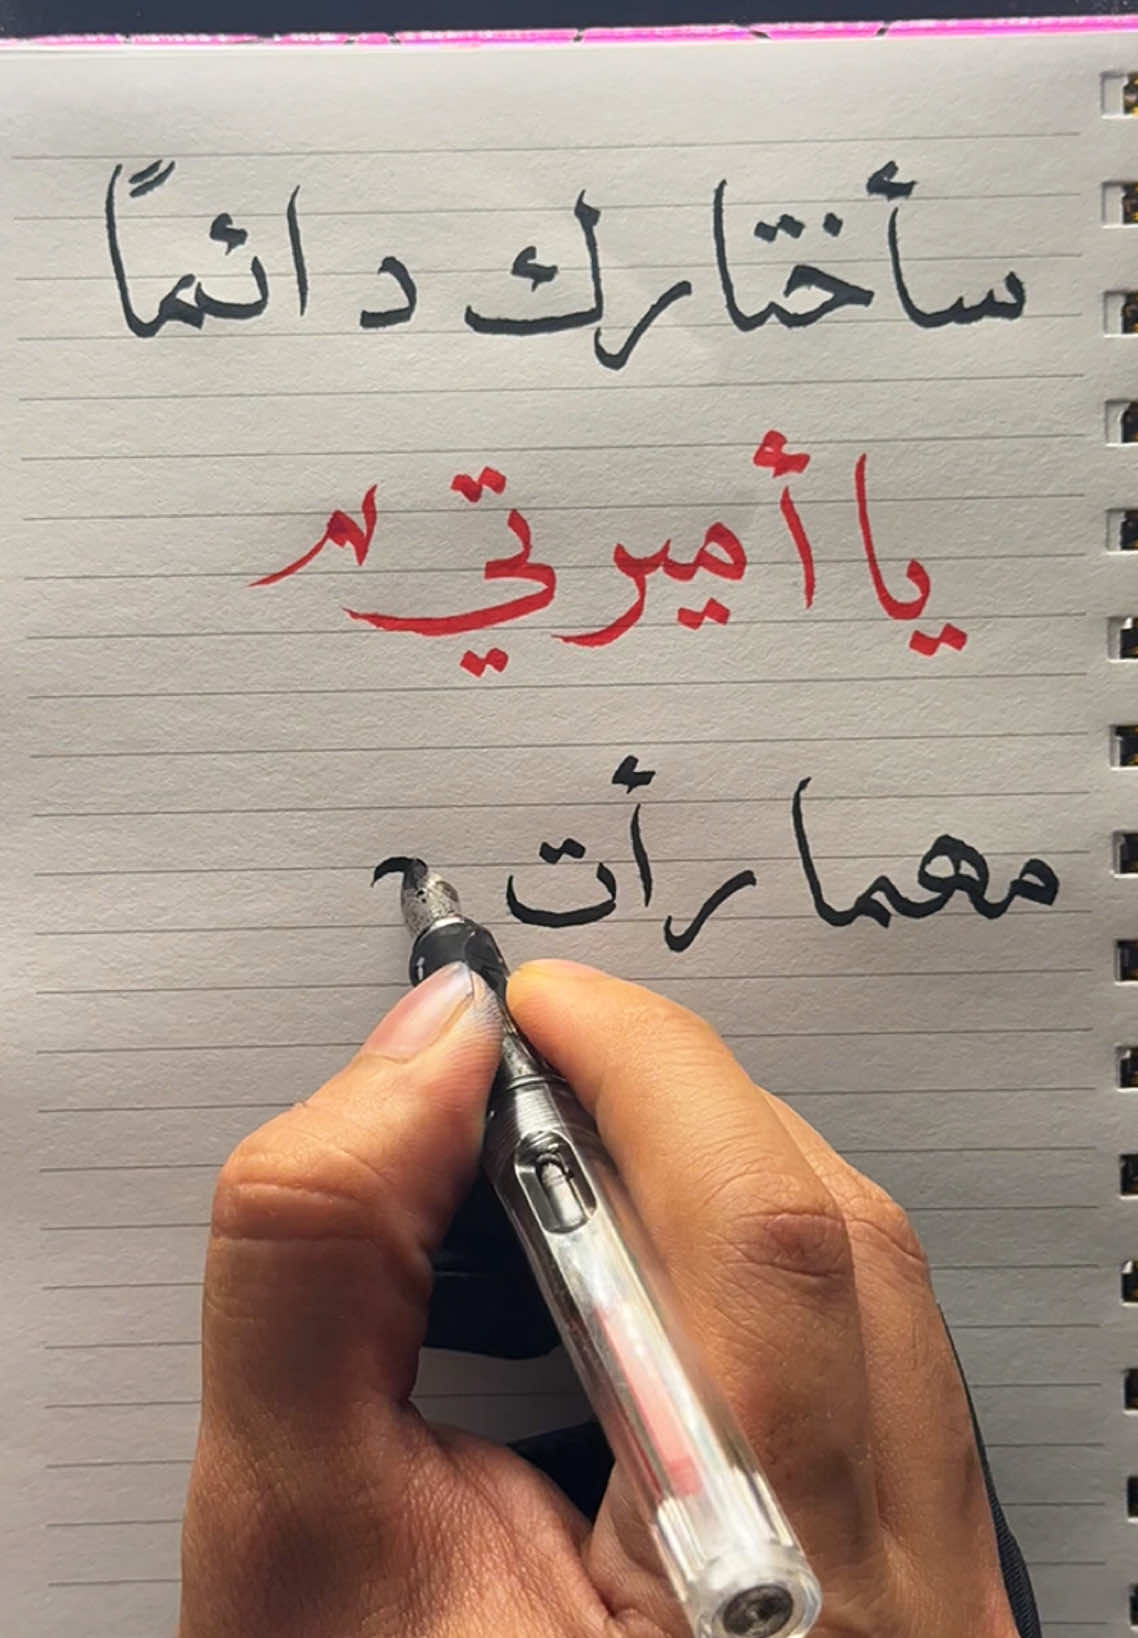 سأختارك دائماً
يا أميرتي
مهما رأت